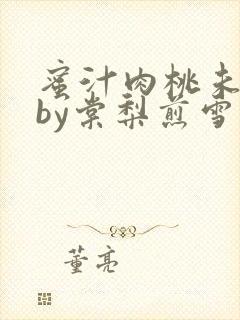 蜜汁肉桃未
by棠梨煎雪
董亮